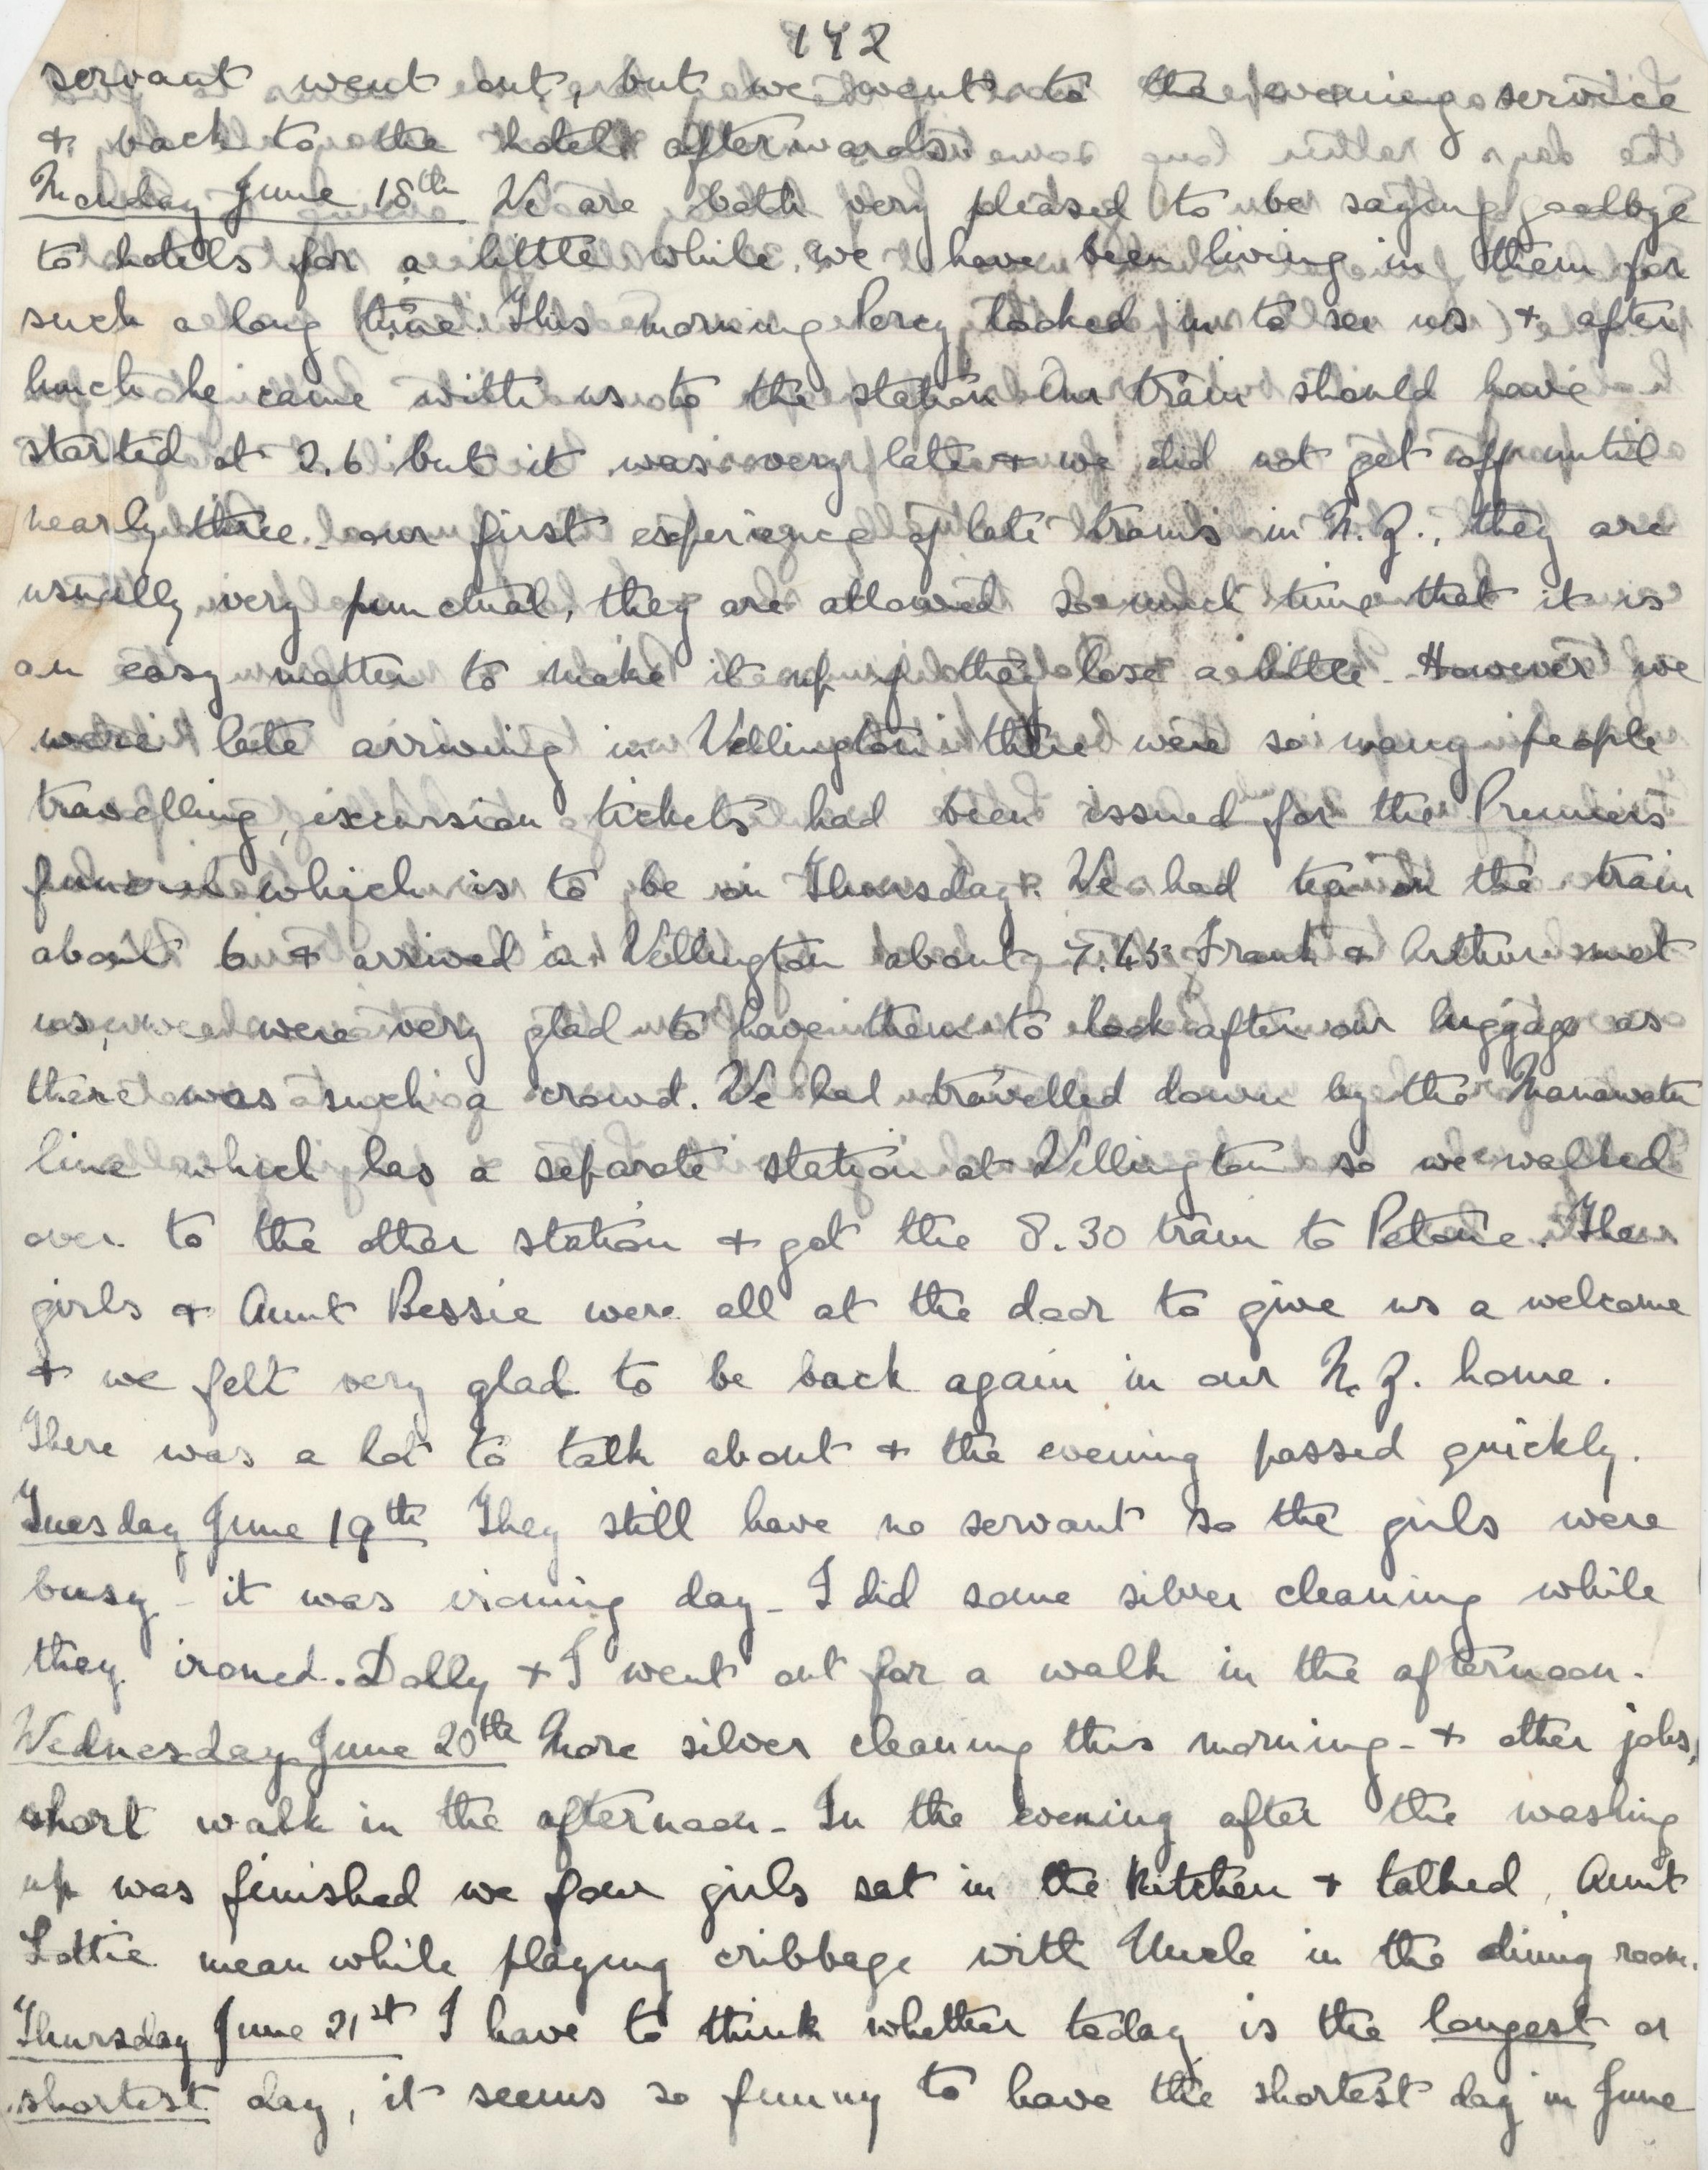 142
servant went out, but we went to the evening service
& back to the hotel afterwards.
Monday June 18th We are both very pleased to be saying goodbye
to hotels for a little while, we have been living in them for
such a long time. This morning Percy looked in to see us & after
lunch he came with us to the station Our train should have
started at 2.6 but it was very late & we did not get off until
nearly three - our first experience of late trains in N.Z., they are
usually very punctual, they are allowed so much time that it is
an easy matter to make it up if they lose a little. However we
were late arriving in Wellington there were so many people
travelling, excursion tickets had been issued for the Premiers
funeral which is to be on Thursday. We had tea on the train
about 6 & arrived in Wellington about 7.45 Frank & Arthur met
us, we were very glad to have them to look after our luggage as
there was such a crowd. We had travelled down by the Manawatu
line which has a separate station at Wellington so we walked
over to the other station & got the 8.30 train to Petone. The
girls & Aunt Bessie were all at the door to give us a welcome
& we felt very glad to be back again in our N.Z. home.
There was a lot to talk about & the evening passed quickly.
Tuesday June 19th They still have no servant so the girls were
busy - it was ironing day - I did some silver cleaning while
they ironed. Dolly & I went out for a walk in the afternoon.
Wednesday June 20th More silver cleaning this morning - & other jobs,
short walk in the afternoon - In the evening after the washing
up was finished we four girls sat in the kitchen & talked, Aunt
Lottie meanwhile playing cribbage with Uncle in the dining room.
Thursday June 21st I have to think whether today is the longest or
shortest day, it seems so funny to have the shortest day in June